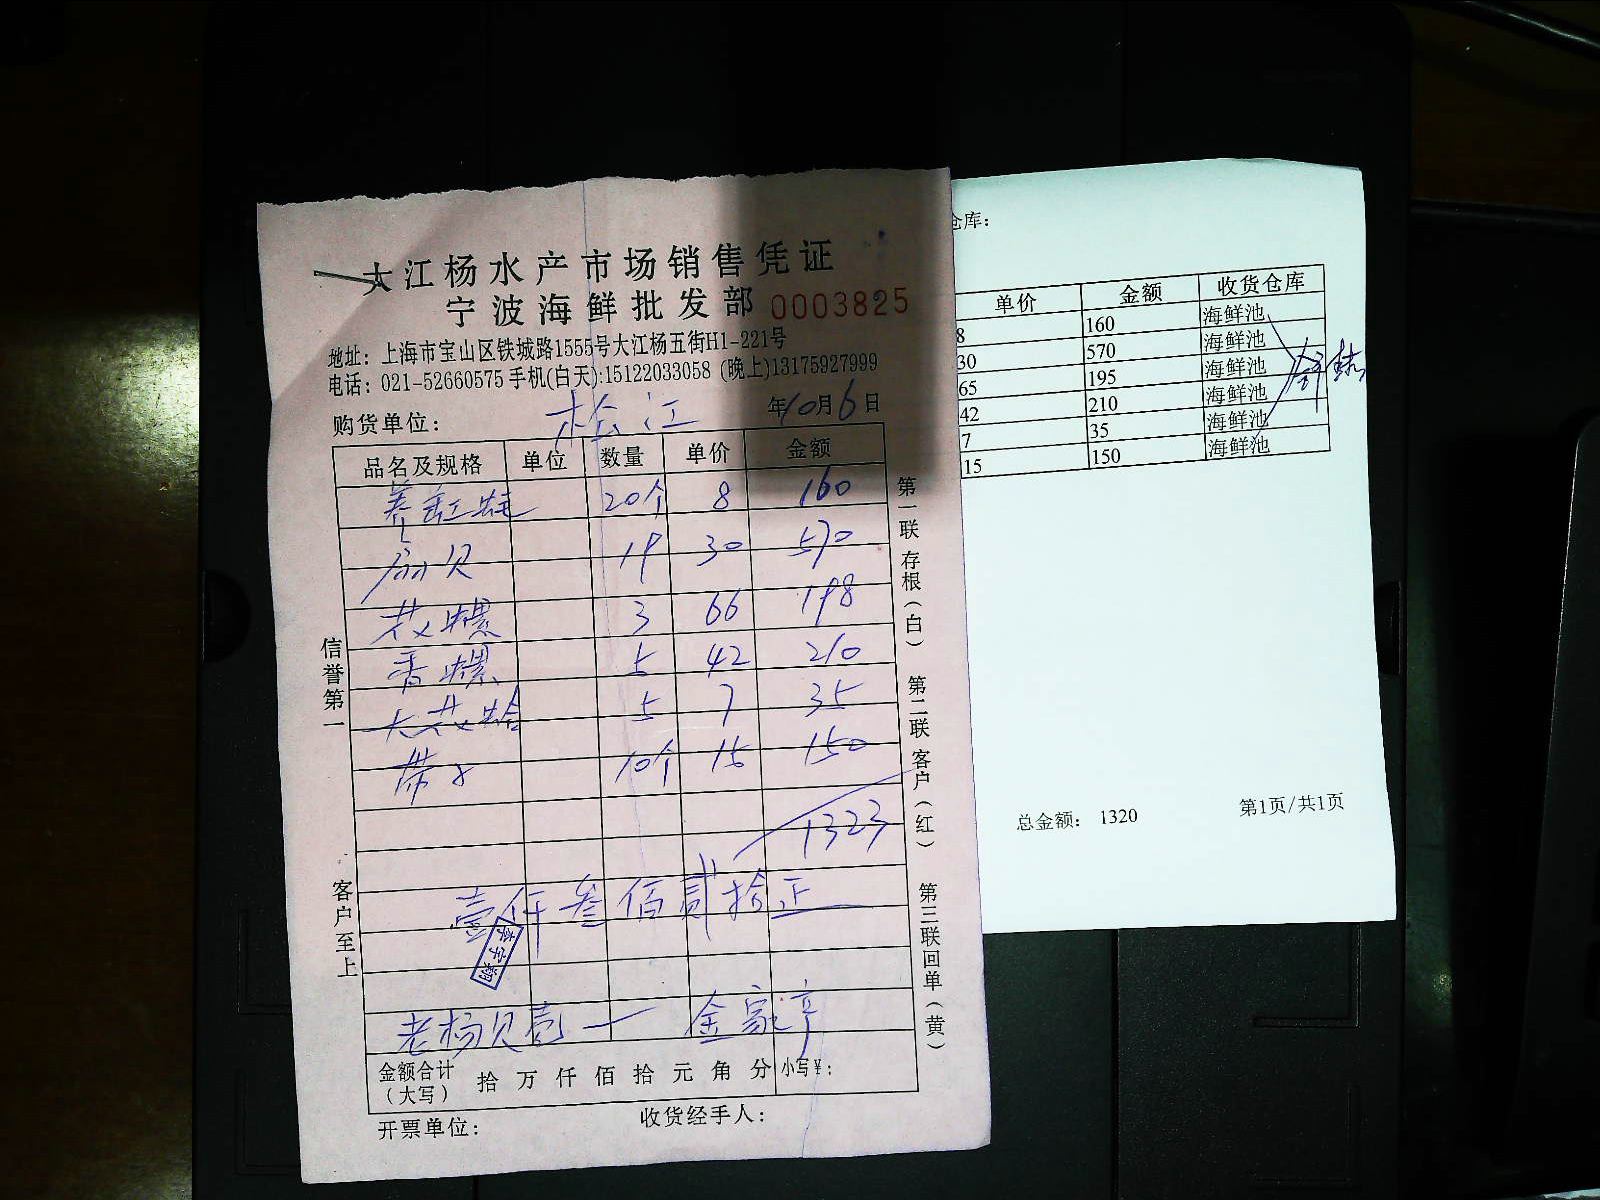 大江杨水产市场销售凭证
宁波海鲜批发部 0003825
地址：上海市宝山区铁城路1555号大江杨五街H1-221号
电话：021-52660575 手机(白天):15122033058 (晚上)13175927999
购货单位： 松江 年10月6日
品名及规格 单位 数量 单价 金额
养虹蚝 20个 8 160
扇贝 19 30 570
花螺 3 66 198
香螺 5 42 210
大花蛤 5 7 35
带子 10个 15 150
1323
壹仟叁佰贰拾正
老杨贝壳 — 金家亭
金额合计（大写） 拾 万 仟 佰 拾 元 角 分 小写¥：
开票单位： 收货经手人：
信誉第一
客户至上
第一联 存根（白） 第二联 客户（红） 第三联 回单（黄）
仓库：
单价 金额 收货仓库
8 160 海鲜池
30 570 海鲜池
65 195 海鲜池
42 210 海鲜池
7 35 海鲜池
15 150 海鲜池
总金额： 1320 第1页/共1页